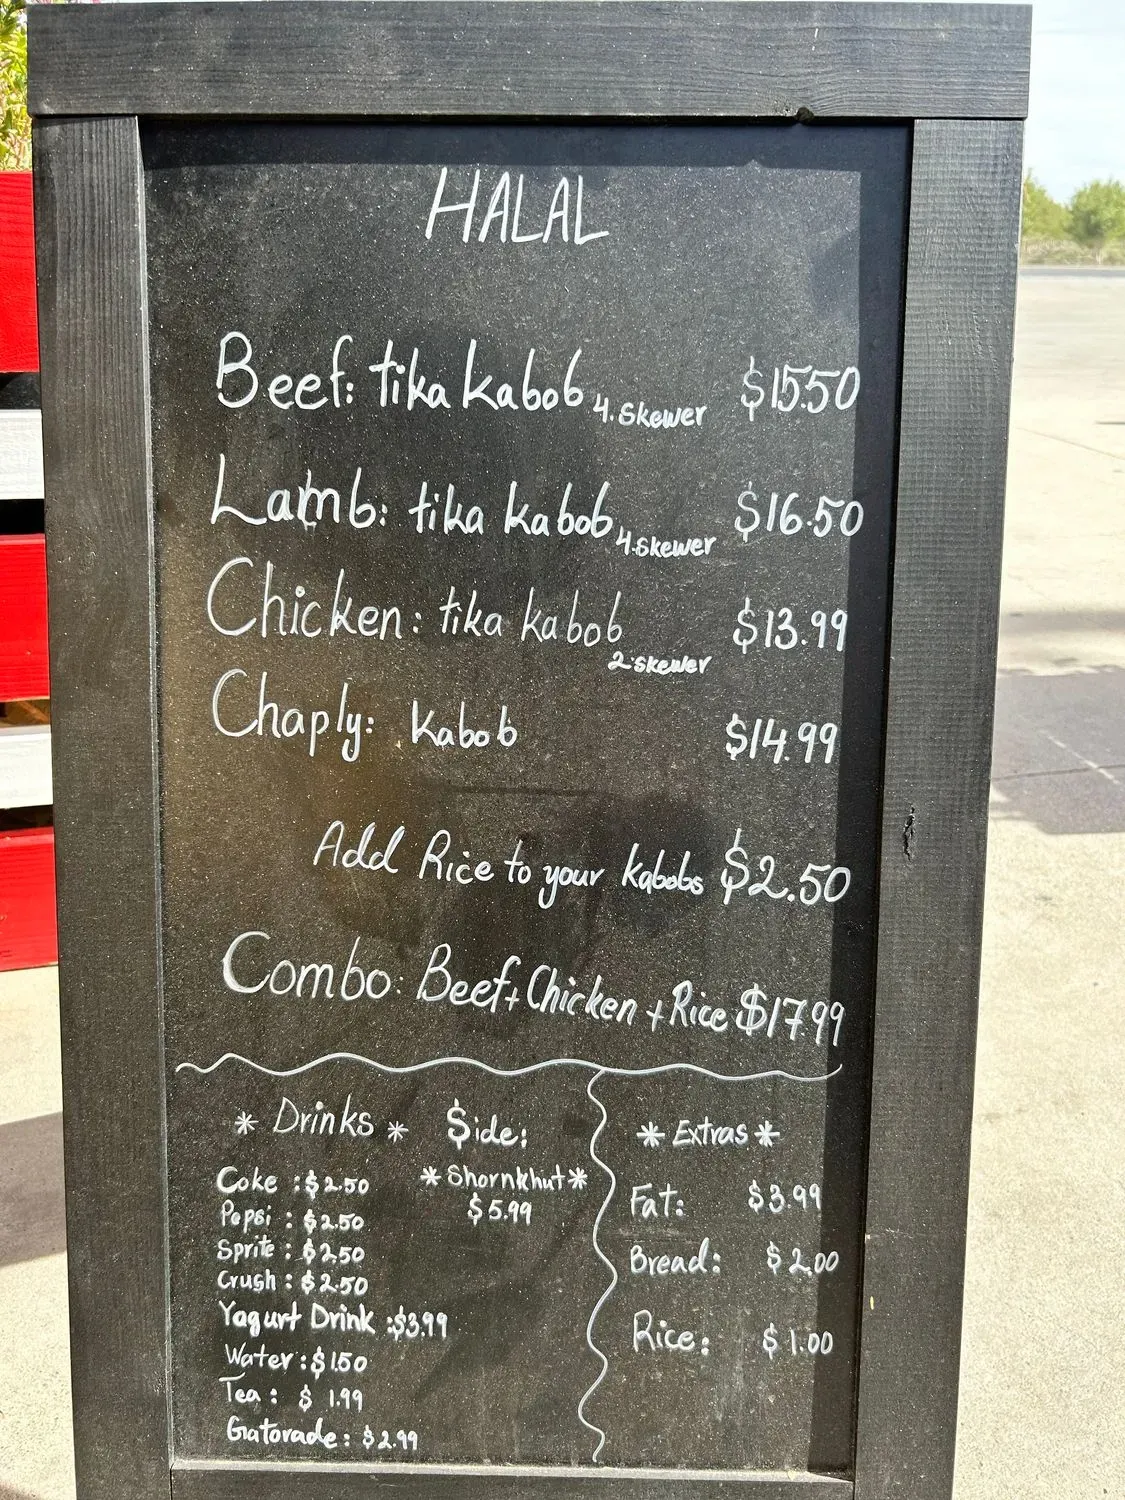 HALAL
Beef: tika kabob 4.skewer $15.50
Lamb: tika kabob 4.skewer $16.50
Chicken: tika kabob 2.skewer $13.99
Chaply: kabob $14.99
Add Rice to your kabobs $2.50
Combo: Beef+Chicken+Rice $17.99
*Drinks*
Coke : $2.50
Pepsi : $2.50
Sprite : $2.50
Crush : $2.50
Yagurt Drink : $3.99
Water : $1.50
Tea : $1.99
Gatorade : $2.99
$ide:
*Shornkhut*
$5.99
*Extras*
Fat: $3.99
Bread: $2.00
Rice: $1.00